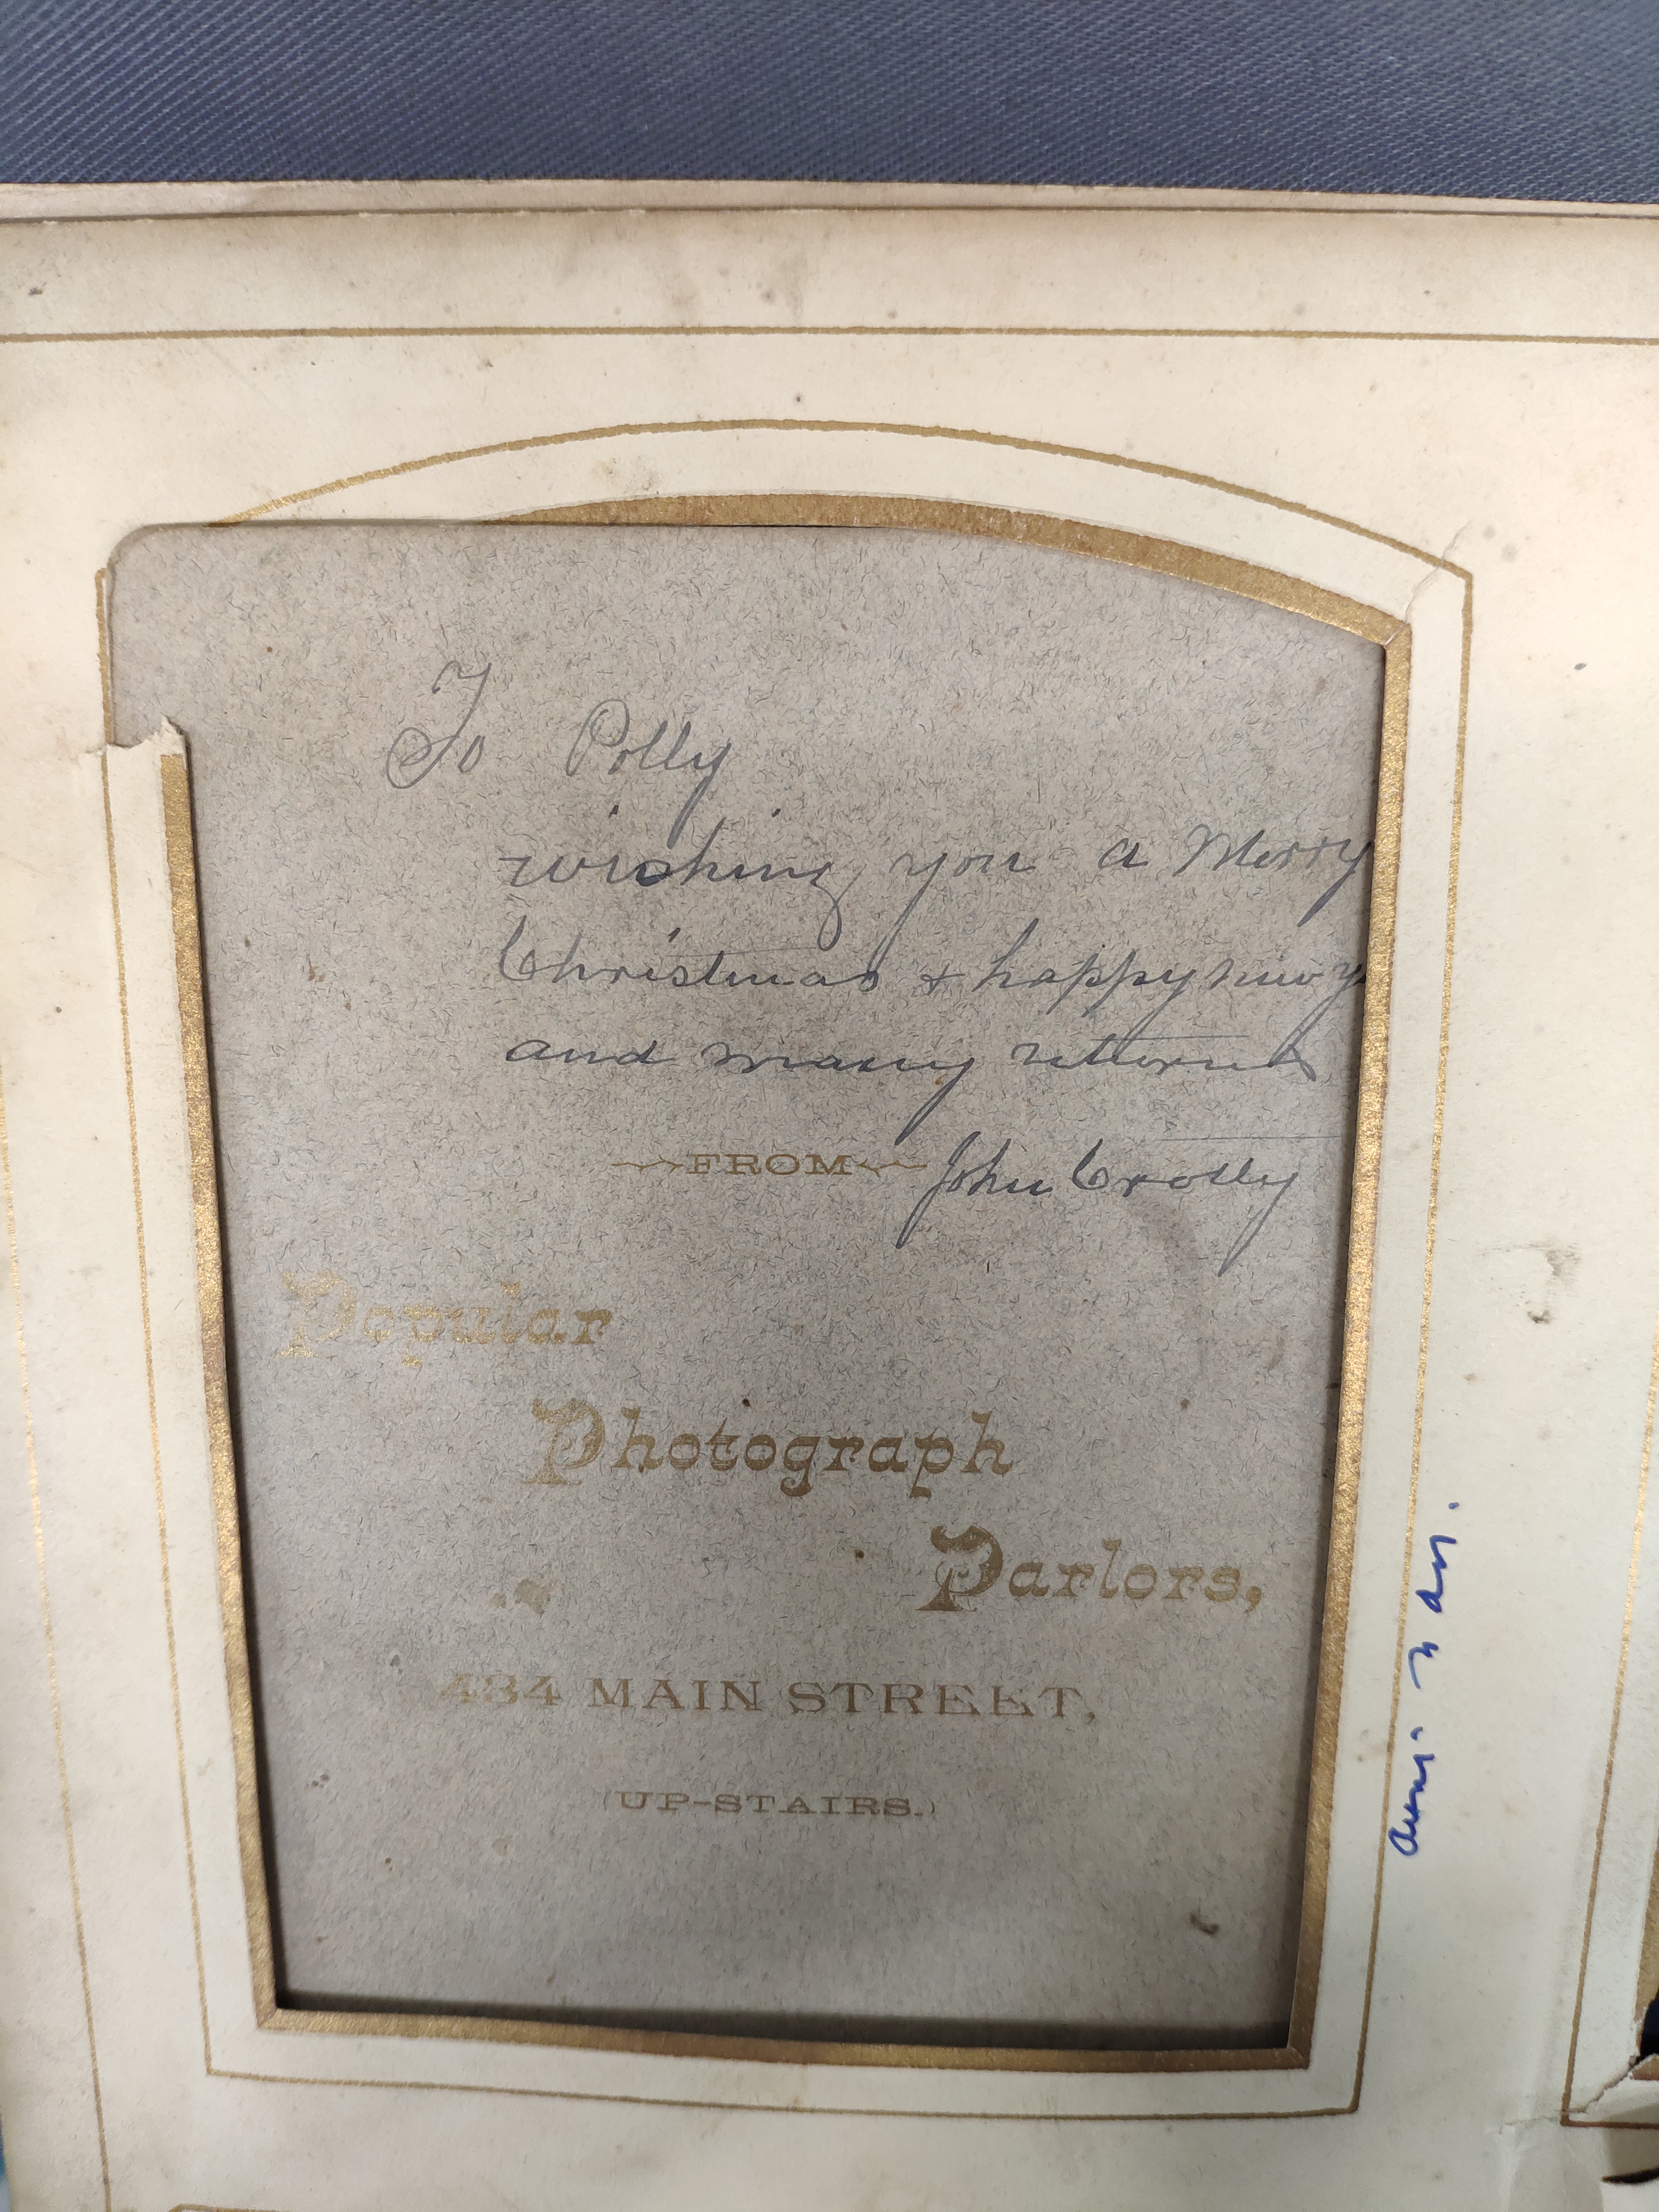 To Polly
wishing you a Merry
Christmas & happy new y
and many returns
FROM John Crolly
Popular
Photograph
Parlors,
484 MAIN STREET,
(UP-STAIRS.)